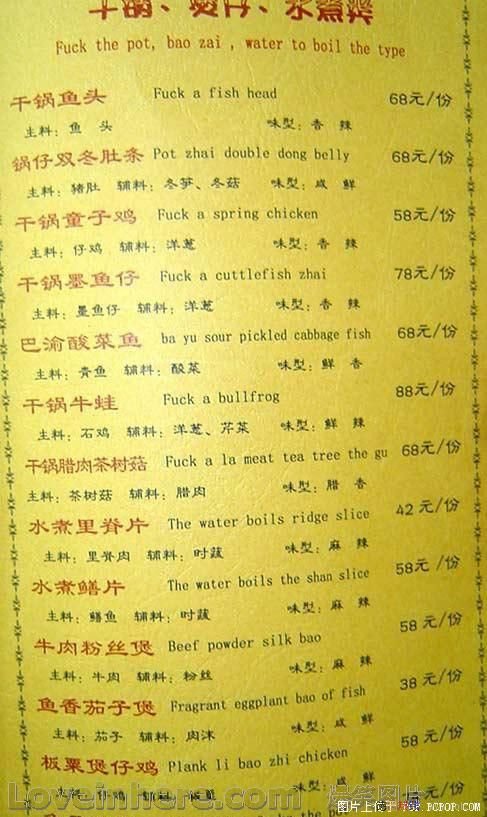 干锅、煲仔、水煮类
Fuck the pot, bao zai , water to boil the type
干锅鱼头 Fuck a fish head 68元/份
主料: 鱼 头 味型: 香 辣
锅仔双冬肚条 Pot zhai double dong belly 68元/份
主料: 猪肚 辅料: 冬笋、冬菇 味型: 咸 鲜
干锅童子鸡 Fuck a spring chicken 58元/份
主料: 仔鸡 辅料: 洋葱 味型: 香 辣
干锅墨鱼仔 Fuck a cuttlefish zhai 78元/份
主料: 墨鱼仔 辅料: 洋葱 味型: 香 辣
巴渝酸菜鱼 ba yu sour pickled cabbage fish 68元/份
主料: 青鱼 辅料: 酸菜 味型: 鲜 香
干锅牛蛙 Fuck a bullfrog 88元/份
主料: 石鸡 辅料: 洋葱、芹菜 味型: 鲜 辣
干锅腊肉茶树菇 Fuck a la meat tea tree the gu 68元/份
主料: 茶树菇 辅料: 腊肉 味型: 腊 香
水煮里脊片 The water boils ridge slice 42元/份
主料: 里脊肉 辅料: 时蔬 味型: 麻 辣
水煮鳝片 The water boils the shan slice 58元/份
主料: 鳝鱼 辅料: 时蔬 味型: 麻 辣
牛肉粉丝煲 Beef powder silk bao 58元/份
主料: 牛肉 辅料: 粉丝 味型: 麻 辣
鱼香茄子煲 Fragrant eggplant bao of fish 38元/份
主料: 茄子 辅料: 肉沫 味型: 咸 鲜
板栗煲仔鸡 Plank li bao zhi chicken 58元/份
主料: 仔鸡 辅料: 味型: 咸 鲜
Loveinhere.com 爆笑图片
图片上传于 PCPOP.COM
the po